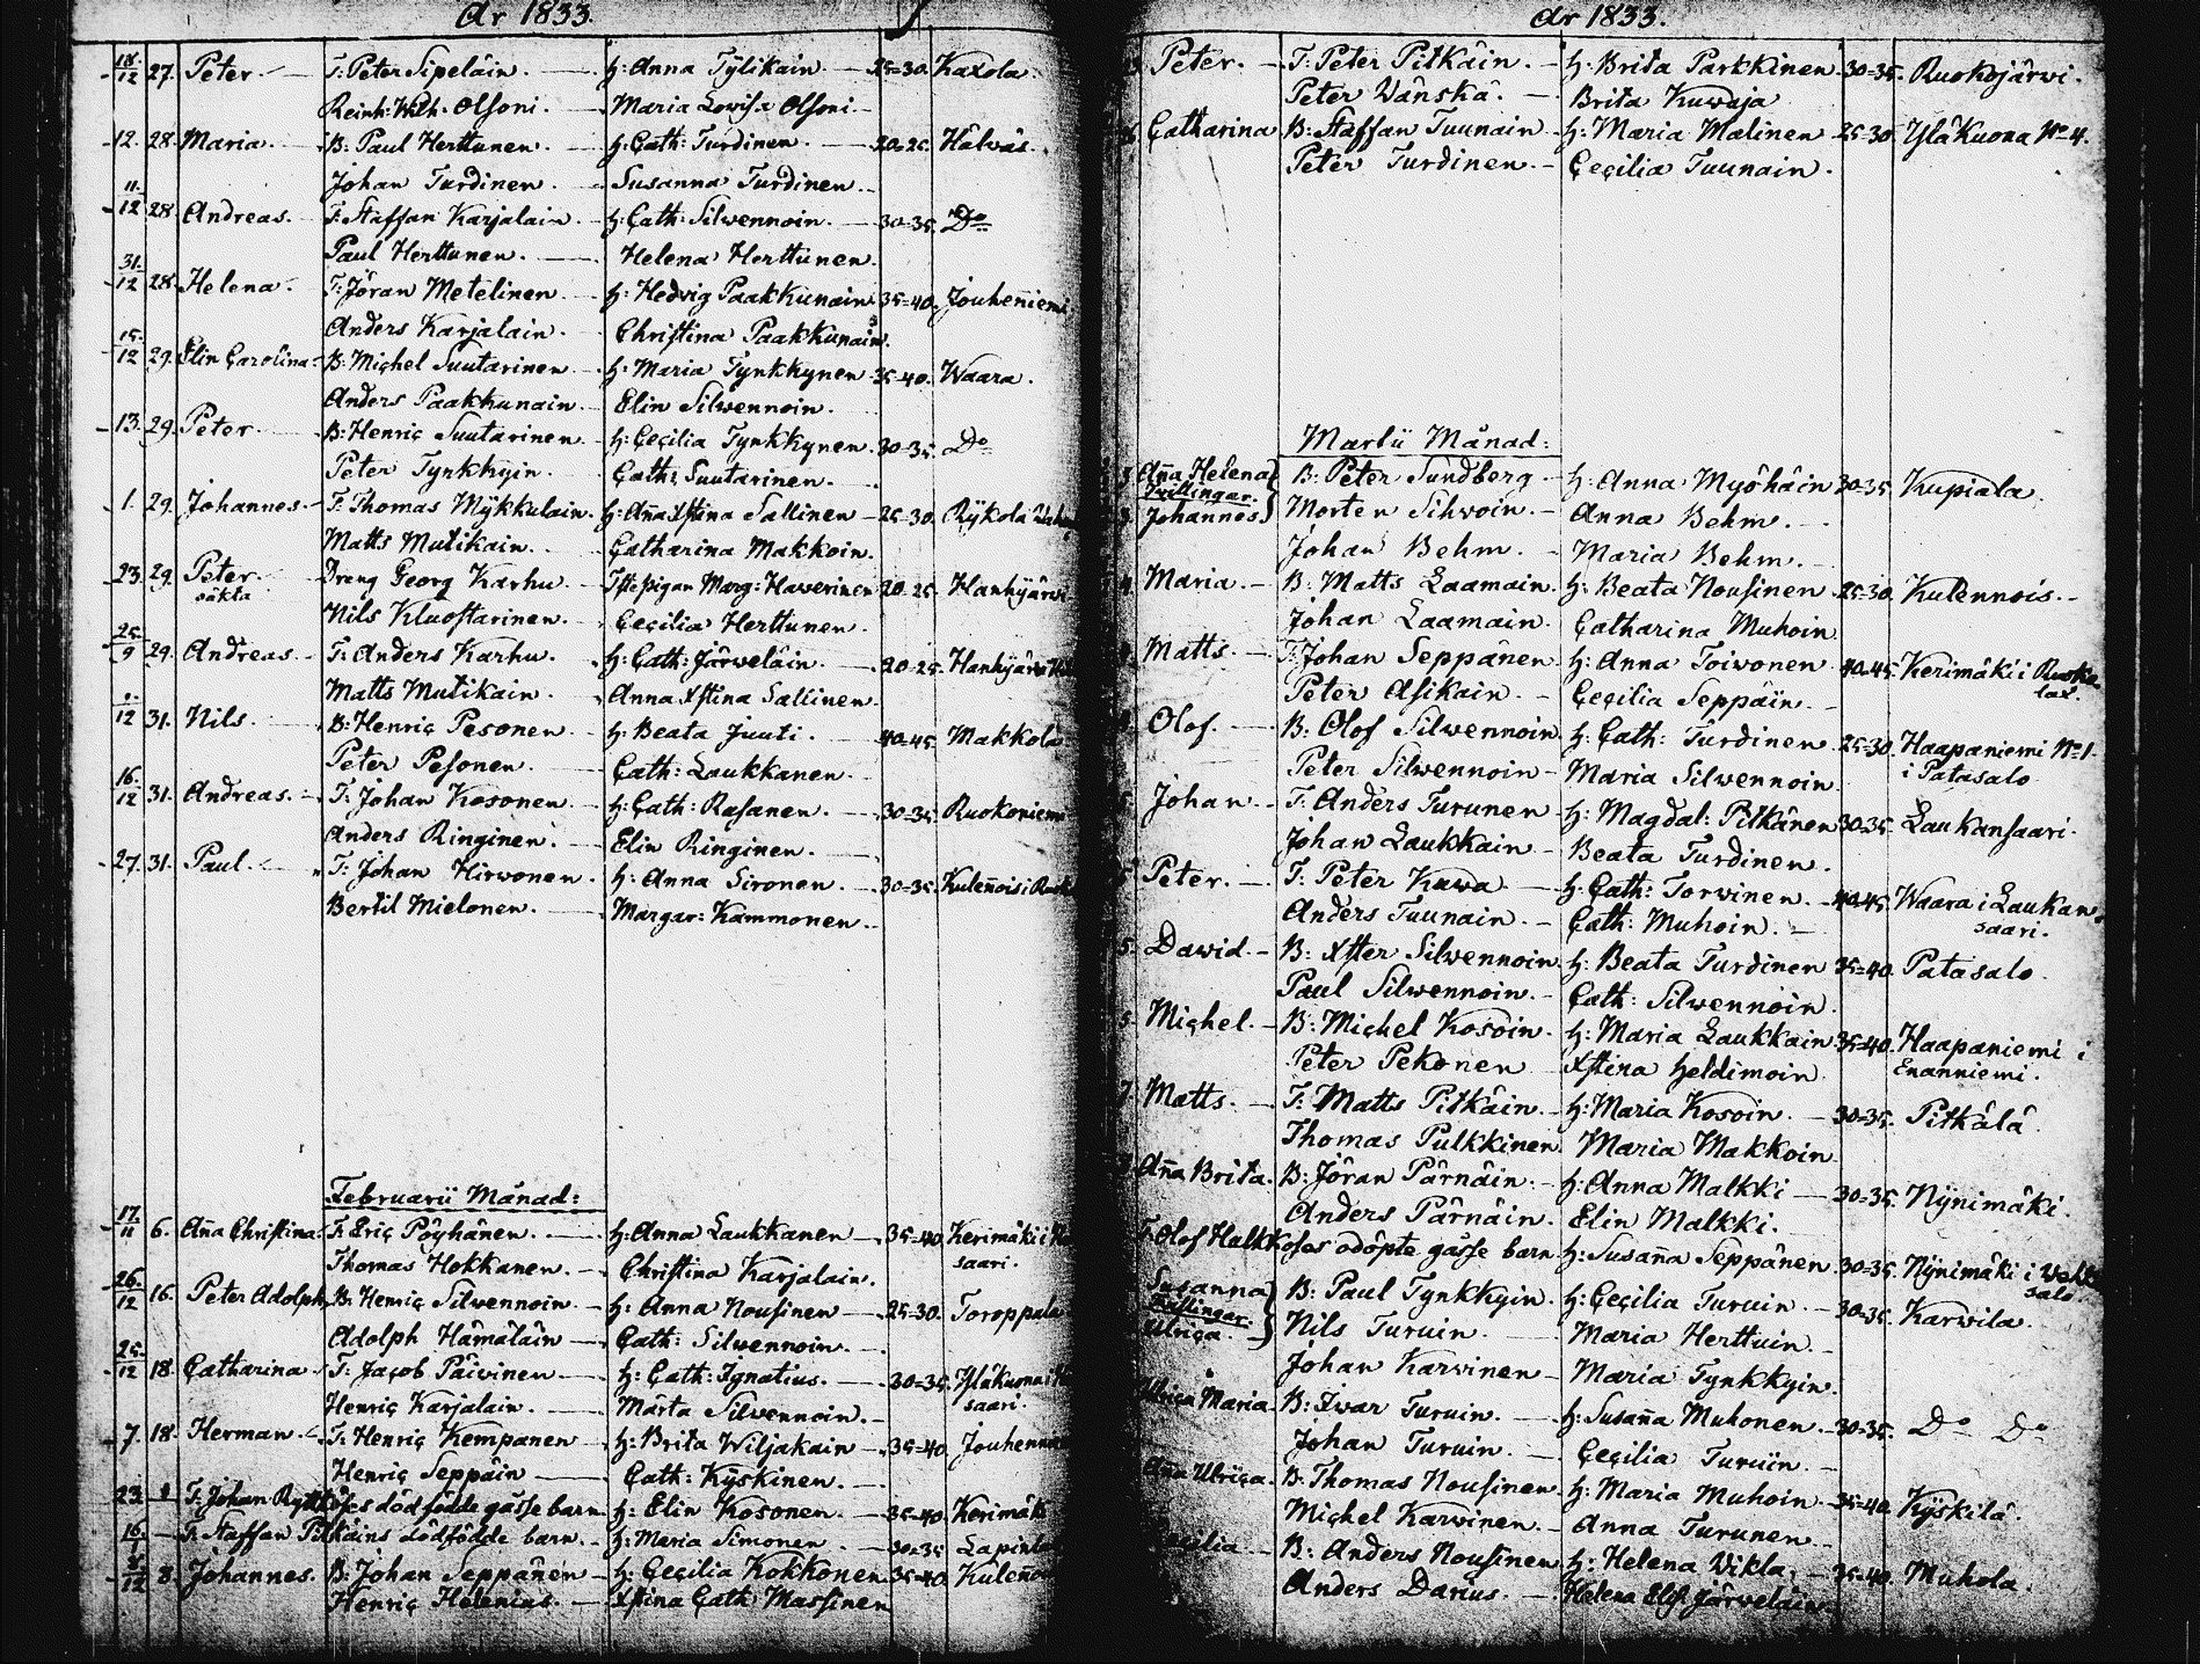 År 1833.
18./12 27. Peter. T: Peter Sipeläin. H: Anna Tylikain 25=30. Kaxola
Reinh: Wilh. Olsoni. Maria Lovisa Olsoni.
12. 28. Maria. B: Paul Herttunen. H: Cath: Turdinen. 20=25. Hälväs.
Johan Turdinen. Susanna Turdinen.
11./12 28. Andreas. T: Staffan Karjalain. H: Cath: Silwennoin. 30=35. Do
Paul Herttunen. Helena Herttunen.
31./12 28. Helena. T: Jöran Metelinen. H: Hedvig Paakkunain 35=40. Jouhenniemi
Anders Karjalain. Christina Paakkunain.
15./12 29. Elin Carolina. B: Michel Suutarinen. H: Maria Tynkkynen 35=40. Waara.
Anders Paakkunain. Elin Silwennoin.
13. 29. Peter. B: Henric Suutarinen. H: Cecilia Tynkkynen 30=35. Do
Peter Tynkkyin. Cath: Suutarinen.
1. 29. Johannes. T: Thomas Mykkulain. H: Aña Xstina Sallinen 25=30. Rykola
Matts Mutikain. Catharina Makkoin.
23. 29. Peter. Dreng Georg Karhu. Pigan Marg: Hawerinen 20=25. Hanhijärwi
oäkta
Nils Kluostarinen. Cecilia Herttunen.
25./9 29. Andreas. T: Anders Karhu. H: Cath: Järweläin. 20=25. Hanhijärwi
Matts Mutikain. Anna Xstina Sallinen.
1./12 31. Nils. B: Henric Pesonen. H: Beata Juuti. 40=45. Makkola
Peter Pesonen. Cath: Laukkanen.
16./12 31. Andreas. T: Johan Kosonen. H: Cath: Rasanen. 30=35. Ruokoniemi
Anders Ringinen. Elin Ringinen.
27. 31. Paul. T: Johan Hirwonen. H: Anna Sironen. 30=35. Kuleñois i
Bertil Mielonen. Margar: Kammonen.
Februarii Månad:
17./11 6. Aña Christina. T: Eric Pöyhänen. H: Anna Laukkanen 35=40. Kerimäki i
Thomas Hokkanen. Christina Karjalain. saari.
26./12 16. Peter Adolph. B: Henric Silwennoin. H: Anna Nousinen 25=30. Toroppala
Adolph Hämäläin Cath: Silwennoin.
25./12 18. Catharina T: Jacob Päiwinen H: Cath: Ignatius. 30=35. Yläkuona i
Henric Karjalain. Märta Silwennoin. saari.
7. 18. Herman T: Henric Kempanen H: Brita Wiljakain 35=40. Jouhenn
Henric Seppäin Cath: Kyskinen.
23. T: Johan dödfödde gåsse barn H: Elin Kosonen. 35=40. Kerimäki
16. T: Staffan Pitkäins dödfödde barn. H: Maria Simonen 30=35 Lapinla
8./12 8. Johannes. B: Johan Seppänen H: Cecilia Kokkonen 35=40. Kuleño
Henric Helenius. Xstina Cath: Massinen
År 1833.
Peter. T: Peter Pitkäin. H: Brita Parkkinen. 30=35. Ruokojärwi.
Peter Wänskä. Brita Kuwaja
Catharina B: Staffan Tuunain H: Maria Malinen 25=30. Ylä Kuona No 4.
Peter Turdinen. Cecilia Tuunain.
Martii Månad:
Aña Helena B: Peter Sundberg H: Anna Myöhäin 30=35 Kupiala
Tvillingar.
Johannes Morten Silwoin. Anna Behm.
Johan Behm. Maria Behm.
Maria. B: Matts Laamain. H: Beata Nousinen. 25=30. Kulennois.
Johan Laamain. Catharina Muhoin
Matts. T: Johan Seppänen. H: Anna Toiwonen 40=45. Kerimäki i Ruoko
lax.
Peter Asikain. Cecilia Seppäin.
Olof. B: Olof Silwennoin. H: Cath: Turdinen 25=30. Haapaniemi No 1.
Peter Silwennoin Maria Silwennoin. i Patasalo
5. Johan. T: Anders Turunen H: Magdal: Pitkänen 30=35. Laukansaari.
Johan Laukkain Beata Turdinen.
5 Peter. T: Peter Kuwa H: Cath: Torwinen. 40=45. Waara i Laukan
saari.
Anders Tuunain. Cath: Muhoin.
5. Dawid. B: Xster Silwennoin. H: Beata Turdinen 35=40. Patasalo
Paul Silwennoin. Cath: Silwennoin.
5 Michel. B: Michel Kosoin. H: Maria Laukkain 35=40. Haapaniemi i
Enanniemi.
Peter Pekonen Xstina Heldimoin
7 Matts. T: Matts Pitkäin. H: Maria Kosoin. 30=35. Pitkälä
Thomas Pulkkinen Maria Makkoin
Aña Brita. B: Jöran Pärnäin. H: Anna Malkki 30=35. Nynimäki.
Anders Pärnäin. Elin Malkki.
T: Olof Halkkoses odöpte gåsse barn H: Susaña Seppänen 30=35. Nynimäki i
salo.
Susanna B: Paul Tynkkyin. H: Cecilia Turuin. 30=35. Karwila.
Tvillingar.
Ulrica. Nils Turuin. Maria Herttuin.
Johan Karwinen Maria Tynkkyin.
Ulrica Maria. B: Iwar Turuin. H: Susaña Muhonen. 30=35. Do Do
Johan Turuin. Cecilia Turuin.
Aña Ulrica. B: Thomas Nousinen H: Maria Muhoin 35=40. Kyskilä.
Michel Karwinen. Anna Turunen
Cecilia B: Anders Nousinen H: Helena Wikla. 35=40. Muhola.
Anders Darius. Helena Elis: Järweläin.